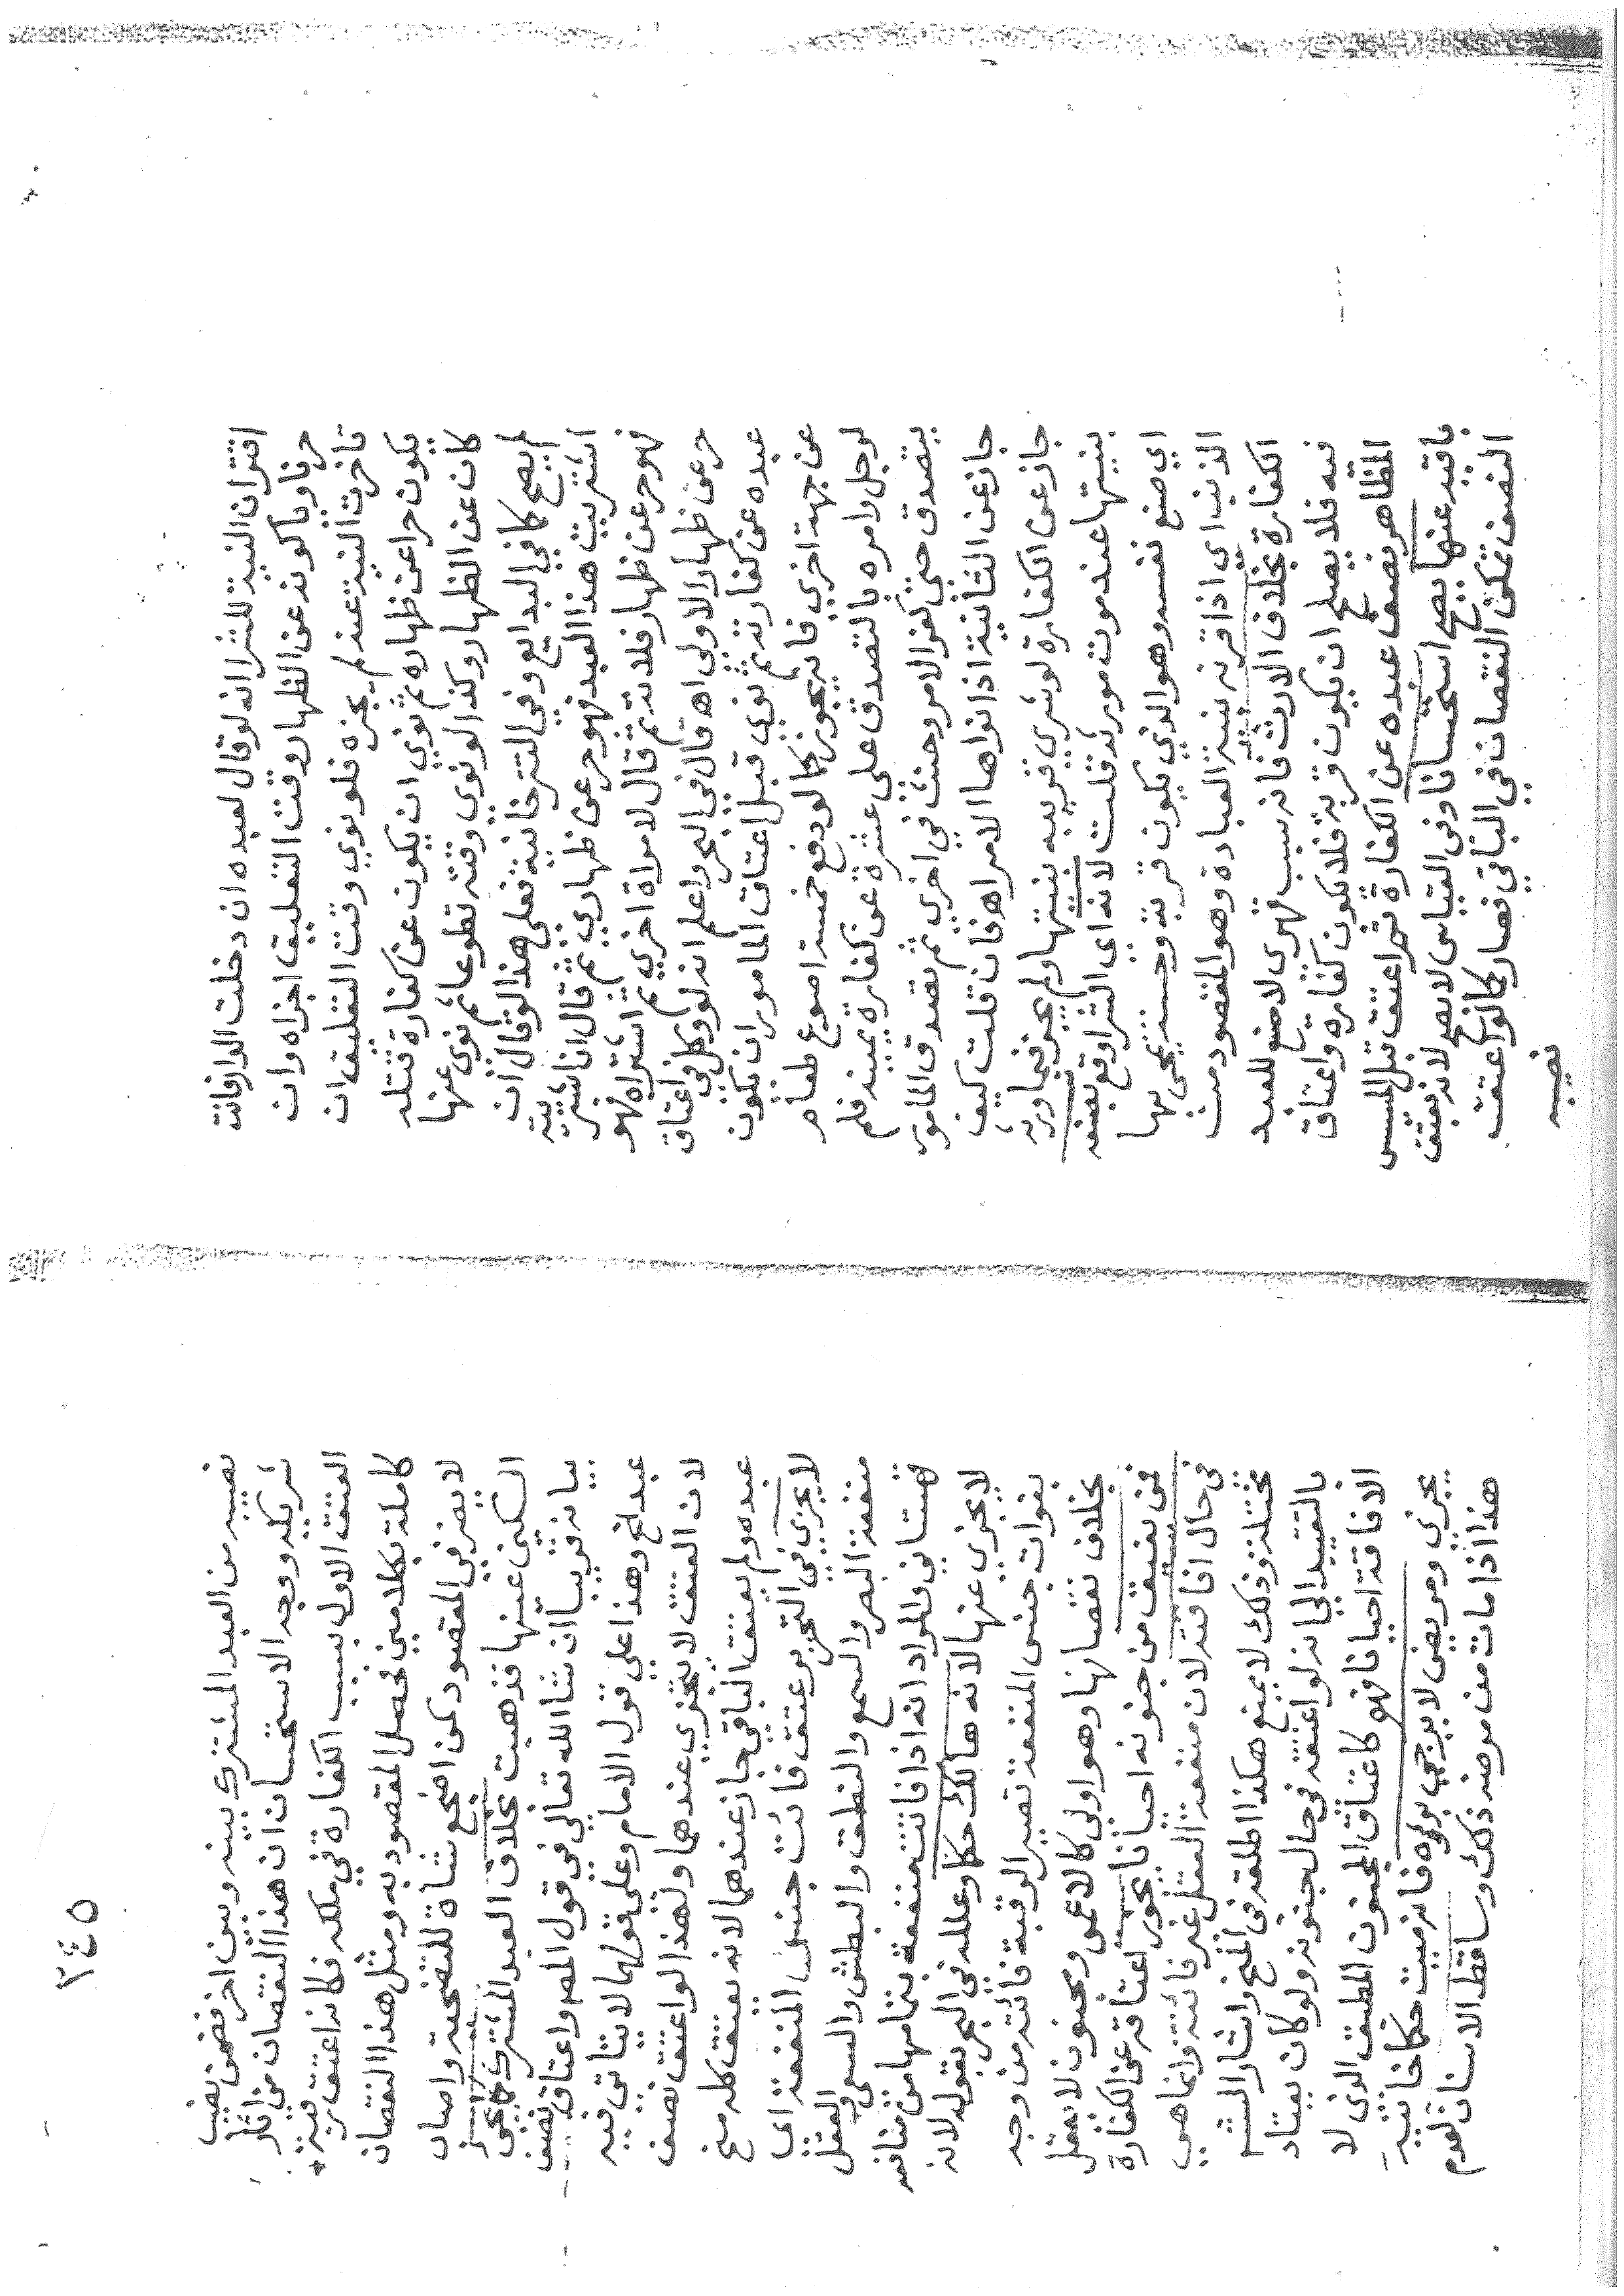 اقتران النية للشرا انه لو قال لعبده ان دخلت الدار فانت
حر ناويا كونه عن الظهار وقت التعليق اجزاه وان
تاخرت النية عنه لم يجزه فلو نوي وقت التعليق ان
يكون حرا عن ظهاره ثم نوي ان يكون عن كفارة قتله
كان عن الظهار وكذا لو نوي وقته تطوعا ثم نوى عنها
لم يصح كما في البدايع وفي التترخانية فعلي هذا لو قال ان
اشتريت هذا العبد فهو حر عن ظهاري ثم قال ان اشتريته
فهو حر عن ظهار فلانة ثم قال لامراة اخري ثم اشتراه فهو
حر عن ظهار الاولى اه قال في البحر واعلم انه لو وكل في اعتاق
عبده عن كفارته ثم نوي قبل اعتاق المامور ان يكون
عن جهة اخري فانه يجوز كما لو دفع خمسة اصوع طعام
لرجل وامره بالتصدق على عشرة عن كفارة يمينه فلم
يتصدق حتى كفر الامر وحنث في اخري ثم تصدق المامور
جاز عن الثانية اذا نواها الامر اه فان قلت كيف
جاز عن الكفارة لو شري قريبه بنيتها ولم يجز فيما ورثه
بنيتها عند موت مورثه قلت لانه اى الشرا وقع بصنعه
اي صنع نفسه وهو الذي يكون قربة وحسنة يمحى بها
الذنب اى اذا قرنه بنية العبادة وهو المقصود من
الكفارة بخلاف الارث فانه سبب قهرى لا صنع للعبد
فيه فلا يصلح ان يكون قربة فلا تكون كفارة واعتاق
المظاهر نصف عبده عن الكفارة ثم اعتق قبل المسيس
باقيه عنها يصح استحسانا وفى القياس لا يصح لانه بعتق
النصف تمكن النقصان في الباقي فصار كما لو اعتق
نصيبه
٢٤٥
نصيبه من العبد المشترك بينه وبين اخر فضمن نصيب
شريكه ووجه الاستحسان ان هذا النقصان من اثار
العتق الاول بسبب الكفارة في ملكه فكانه اعتق رقبة
كاملة بكلامين فحصل المقصود به ومثل هذا النقصان
لا يضر في المقصود كمن اضجع شاة للتضحية واصاب
السكين عينها فذهبت بخلاف العبد المشترك كما يجي
بيانه قريبا ان شا الله تعالي في قول المص واعتاق نصف
عبد الخ وهذا علي قول الامام وعلى قولهما لا يتاتي فيه
لان العتق لا يتجزي عندهما ولهذا لو اعتق نصف
عبده ولم يعتق الباقي جاز عندهما لانه يعتق كله منح
لا يجزي في التحرير عتق فائت جنس المنفعة اى
منفعة البصر والسمع والنطق والبطش والسعي والعقل
قهستاني والمراد انه اذا فاتت منفعة بتمامها من منافعه
لا يجزي عنها لانه هالك حكما وعلله في البحر بقوله لانه
بفوات جنس المنفعة تصير الرقبة فائتة من وجه
بخلاف نقصانها وهو اولي كالاعمى ومجنون لا يعقل
فمن يفيق من جنونه احيانا يجوز اعتاقه عن الكفارة
في حال افاقته لان منفعة العقل غير فائتة وانما هي
مختلة وذلك لا يمنع هكذا اطلقه في المنح واشار
بالتقييد الي انه لو اعتقه في حال جنونه ولو كان يعتاد
الافاقة احيانا فهو كاعتاق المجنون المطبق الذي لا
يجزي ومريض لا يرجى برؤه فانه ميت حكما خانية
هذا اذا مات من مرضه ذلك وساقط الاسنان لعدم